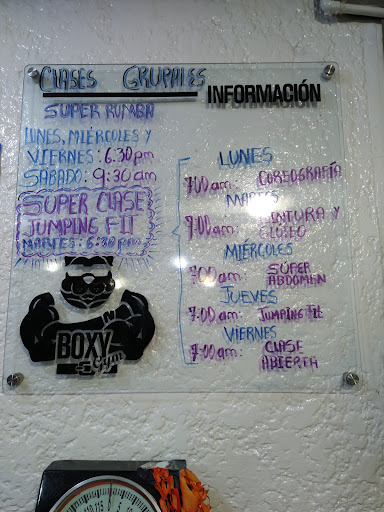 CLASES GRUPALES
INFORMACIÓN
SUPER RUMBA
LUNES, MIÉRCOLES Y
VIERNES: 6:30 pm
SÁBADO: 9:30 am
SUPER CLASE
JUMPING FIT
MARTES: 6:30 pm
BOXY
Gym
LUNES
7:00 am: COREOGRAFÍA
MARTES
7:00 am: CINTURA Y
GLÚTEO
MIÉRCOLES
7:00 am: SÚPER
ABDOMEN
JUEVES
7:00 am: JUMPING FIT
VIERNES
7:00 am: CLASE
ABIERTA
110 115 0 5 10